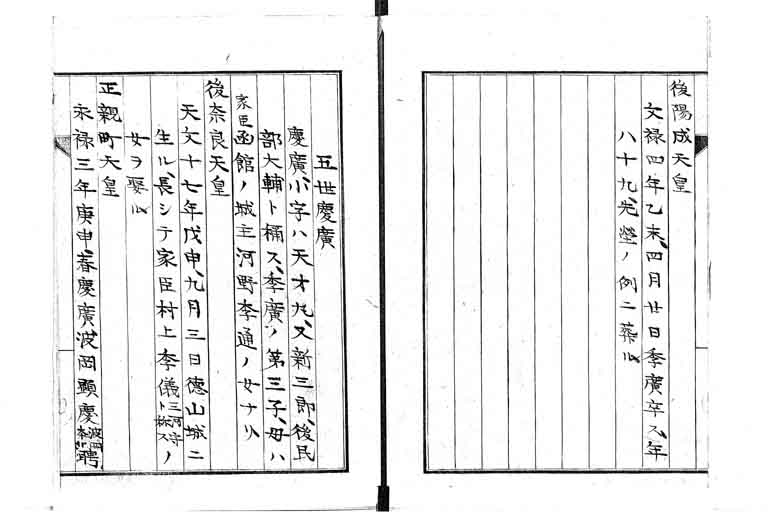 後陽成天皇
文禄四年乙未、四月廿日季廣卒ス、年
八十九、先塋ノ例ニ葬ル
五世慶廣
慶廣、小字ハ天才丸、又新三郎、後民
部大輔ト稱ス、季廣ノ第三子、母ハ
家臣函館ノ城主河野季通ノ女ナリ
後奈良天皇
天文十七年戊申、九月三日德山城ニ
生ル、長シテ家臣村上季儀三河守ト称スノ
女ヲ娶ル
正親町天皇
永禄三年庚申、春慶廣波岡顕慶聘